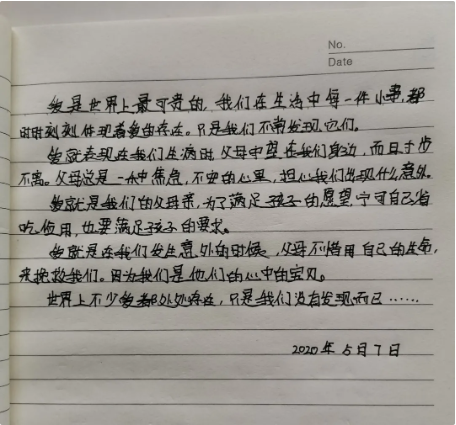 No.
Date
爱是世界上最可贵的,我们在生活中每一件小事,都
时时刻刻体现着爱的存在。只是我们不常发现它们。
爱就表现在我们生病时父母守在我们身边,而日寸步
不离。父母总是一个焦虑,不安的心里,担心我们出现什么意外。
爱就是我们的父母亲,为了满足孩子的愿望宁可自己省
吃俭用,也要满足孩子的要求。
爱就是在我们发生意外的时候,父母不惜用自己的生命,
来挽救我们。因为我们是他们的心中的宝贝。
世界上不少爱都处处存在,只是我们没有发现而已……
2020年5月7日